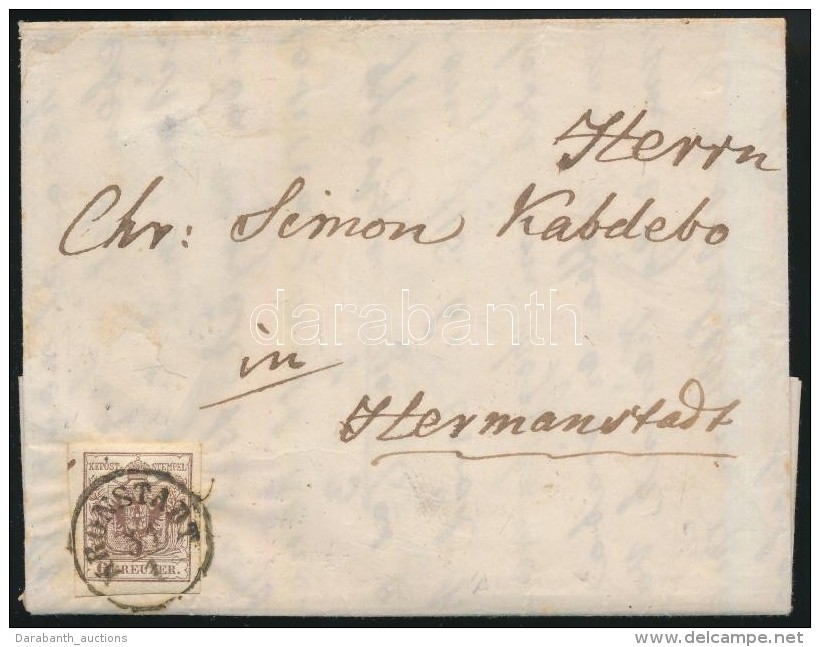 Herrn
Chr: Simon Kabdebo
in
Hermanstadt
darabanth
KKPOST STEMPEL
KRONSTADT
6 KREUZER.
Darabanth_auctions
www.delcampe.net